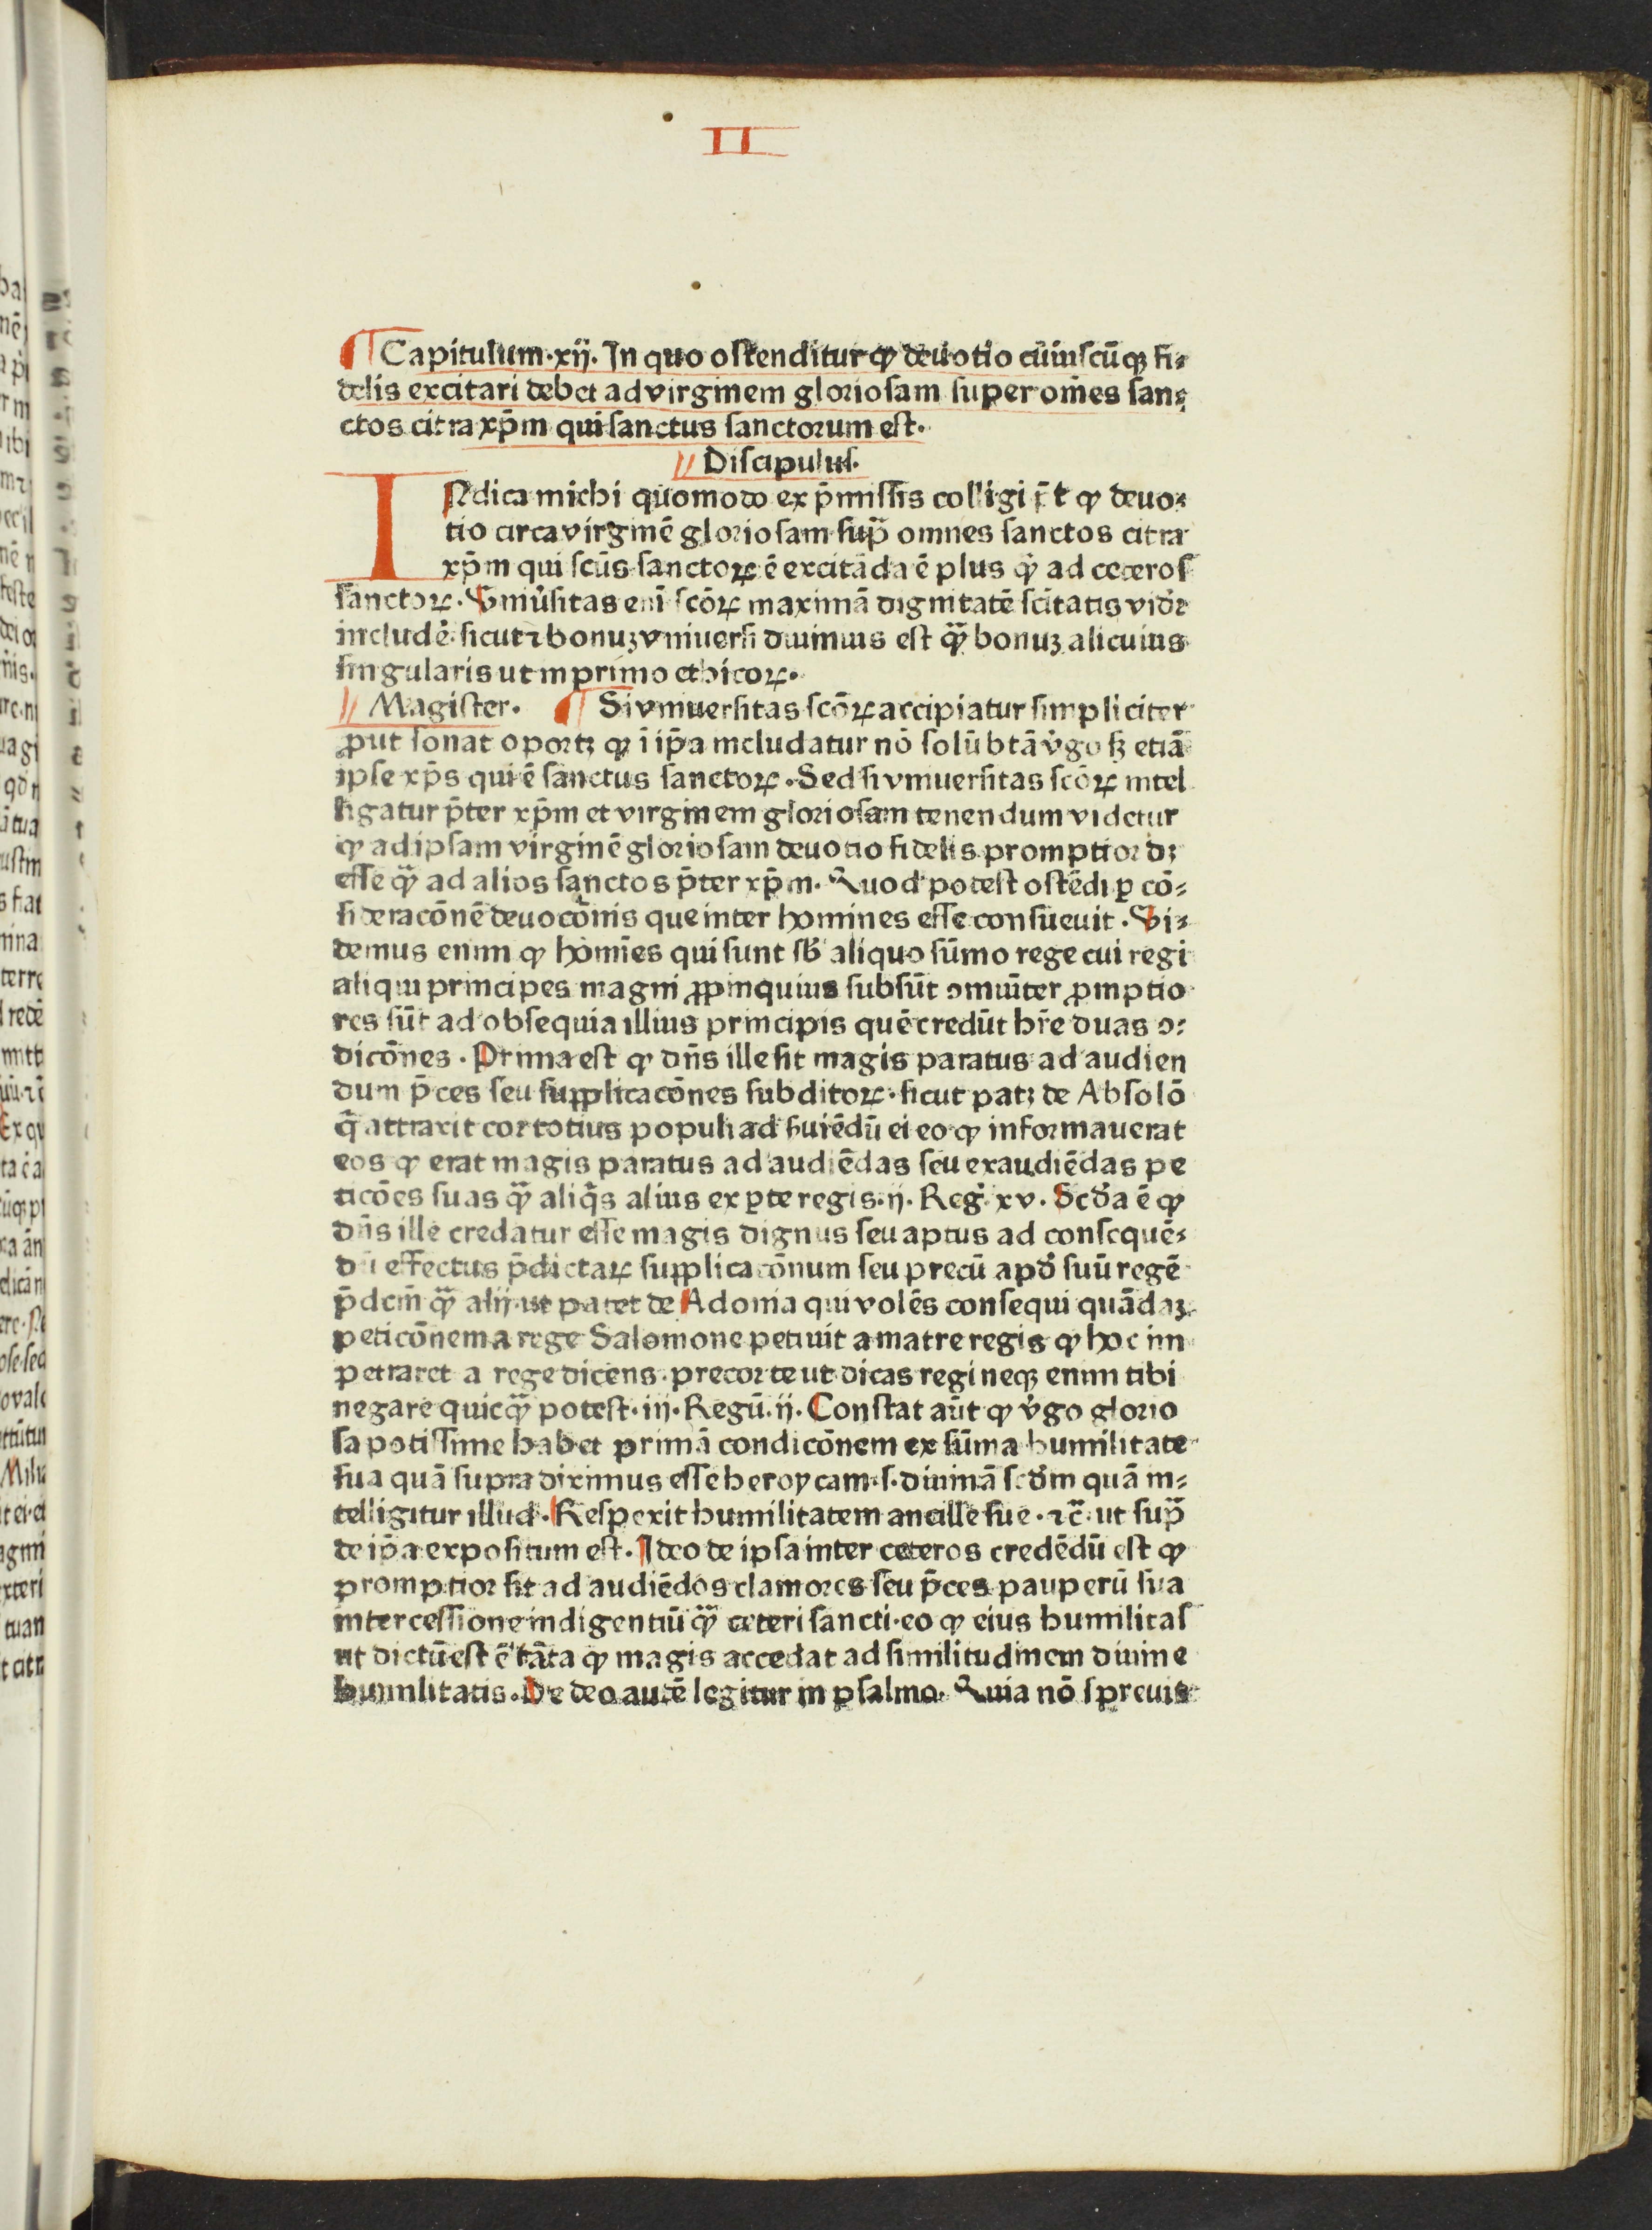 II
¶ Capitulum .xij. In quo ostenditur ꝙ deuotio cuiuscūqꝫ fi⸗
delis excitari debet ad virginem gloriosam super om̄es san⸗
ctos citra xp̄m qui sanctus sanctorum est.
// Discipulus.
INdica michi quomodo ex p̄missis colligi p̄t ꝙ deuo⸗
tio circa virginē gloriosam sup̄ omnes sanctos citra
xp̄m qui scūs sanctoꝝ ē excitāda ē plus ꝙ̄ ad ceteros
sanctoꝝ. Vniu̓sitas eni̅ scōꝝ maximā dignitatē scītatis vidr̄
includē sicut ⁊ bonuꝫ vniuersi diuinius est qꝫ̄ bonuꝫ alicuius
singularis ut in primo ethicoꝝ.
// Magister. ¶ Si vniuersitas scōꝝ accipiatur simpliciter
ꝓut sonat oportꝫ ꝙ ī ip̄a includatur nō solū btā v̓go sꝫ etiā
ipse xp̄s qui ē sanctus sanctoꝝ. Sed si vniuersitas scōꝝ intel
ligatur p̄ter xp̄m et virginem gloriosam tenendum videtur
ꝙ ad ipsam virginē gloriosam deuotio fidelis promptior dꝫ
esse qꝫ̄ ad alios sanctos p̄ter xp̄m. Quod potest ostēdi ꝑ cō⸗
sideracōnē deuocōnis que inter homines esse consueuit. Vi⸗
demus enim ꝙ homi̅es qui sunt sb̓ aliquo sūmo rege cui regi
aliqui principes magni ꝓpinquius subsūt ꝯmuniter ꝓmptio
res sūt ad obsequia illius principis quē credūt hr̄e duas ꝯ⸗
dicōnes. Prima est ꝙ dn̄s ille sit magis paratus ad audien
dum p̄ces seu supplicacōnes subditoꝝ. sicut patꝫ de Absolō
q̄ attraxit cor totius populi ad suiēdū ei eo ꝙ informauerat
eos ꝙ erat magis paratus ad audiēdas seu exaudiēdas pe
ticōes suas qꝫ̄ aliq̓s alius ex ꝑte regis .ij. Reg̓. xv. Scd̓a ē ꝙ
dn̄s ille credatur esse magis dignus seu aptus ad consequē⸗
dū effectus p̄dictaꝝ supplicacōnum seu precū apd̓ suū regē
p̄dcm̄ qꝫ̄ alij. ut patet de Adonia qui volēs consequi quādaꝫ
peticōnem a rege Salomone petiuit a matre regis ꝙ hoc im
petraret a rege dicens. precor te ut dicas regi neqꝫ enim tibi
negare quicqꝫ̄ potest .iij. Regū. ij. Constat aūt ꝙ v̓go glorio
sa potissime habet primā condicōnem ex sūma humilitate
sua quā supra diximus esse heroycam .s. diuinā scd̓m quā in⸗
telligitur illud. Respexit humilitatem ancille sue. ⁊c̄. ut sup̄
de ip̄a expositum est. Ideo de ipsa inter ceteros credēdū est ꝙ
promptior sit ad audiēdos clamores seu p̄ces pauperū sua
intercessione indigentiū qꝫ̄ ceteri sancti. eo ꝙ eius humilitas
ut dictū est ē tāta ꝙ magis accedat ad similitudinem diuine
humilitatis. De deo autē legitur in psalmo. Quia nō spreuit